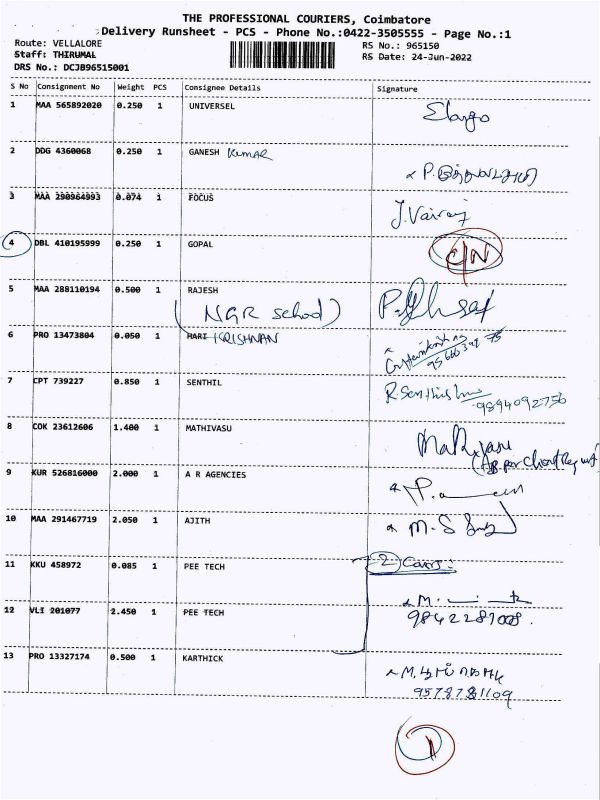 THE PROFESSIONAL COURIERS, Coimbatore
Delivery Runsheet - PCS - Phone No.:0422-3505555 - Page No.:1
Route: VELLALORE
RS No.: 965150
Staff: THIRUMAL
RS Date: 24-Jun-2022
DRS No.: DCJB96515001
S No Consignment No Weight PCS Consignee Details Signature
1 MAA 565892020 0.250 1 UNIVERSEL Elango
2 DDG 4360068 0.250 1 GANESH KUMAR
3 MAA 290964993 0.074 1 FOCUS J. Vairaj
4 DBL 410195999 0.250 1 GOPAL C/N
5 MAA 288110194 0.500 1 RAJESH
(NGR school)
6 PRO 13473804 0.050 1 HARI KRISHNAN
7 CPT 739227 0.850 1 SENTHIL
9894092756
8 COK 23612606 1.400 1 MATHIVASU Mathivasu
9 KUR 526816000 2.000 1 A R AGENCIES
10 MAA 291467719 2.050 1 AJITH
11 KKU 458972 0.085 1 PEE TECH 2 Covers:
12 VLI 201077 2.450 1 PEE TECH
13 PRO 13327174 0.500 1 KARTHICK